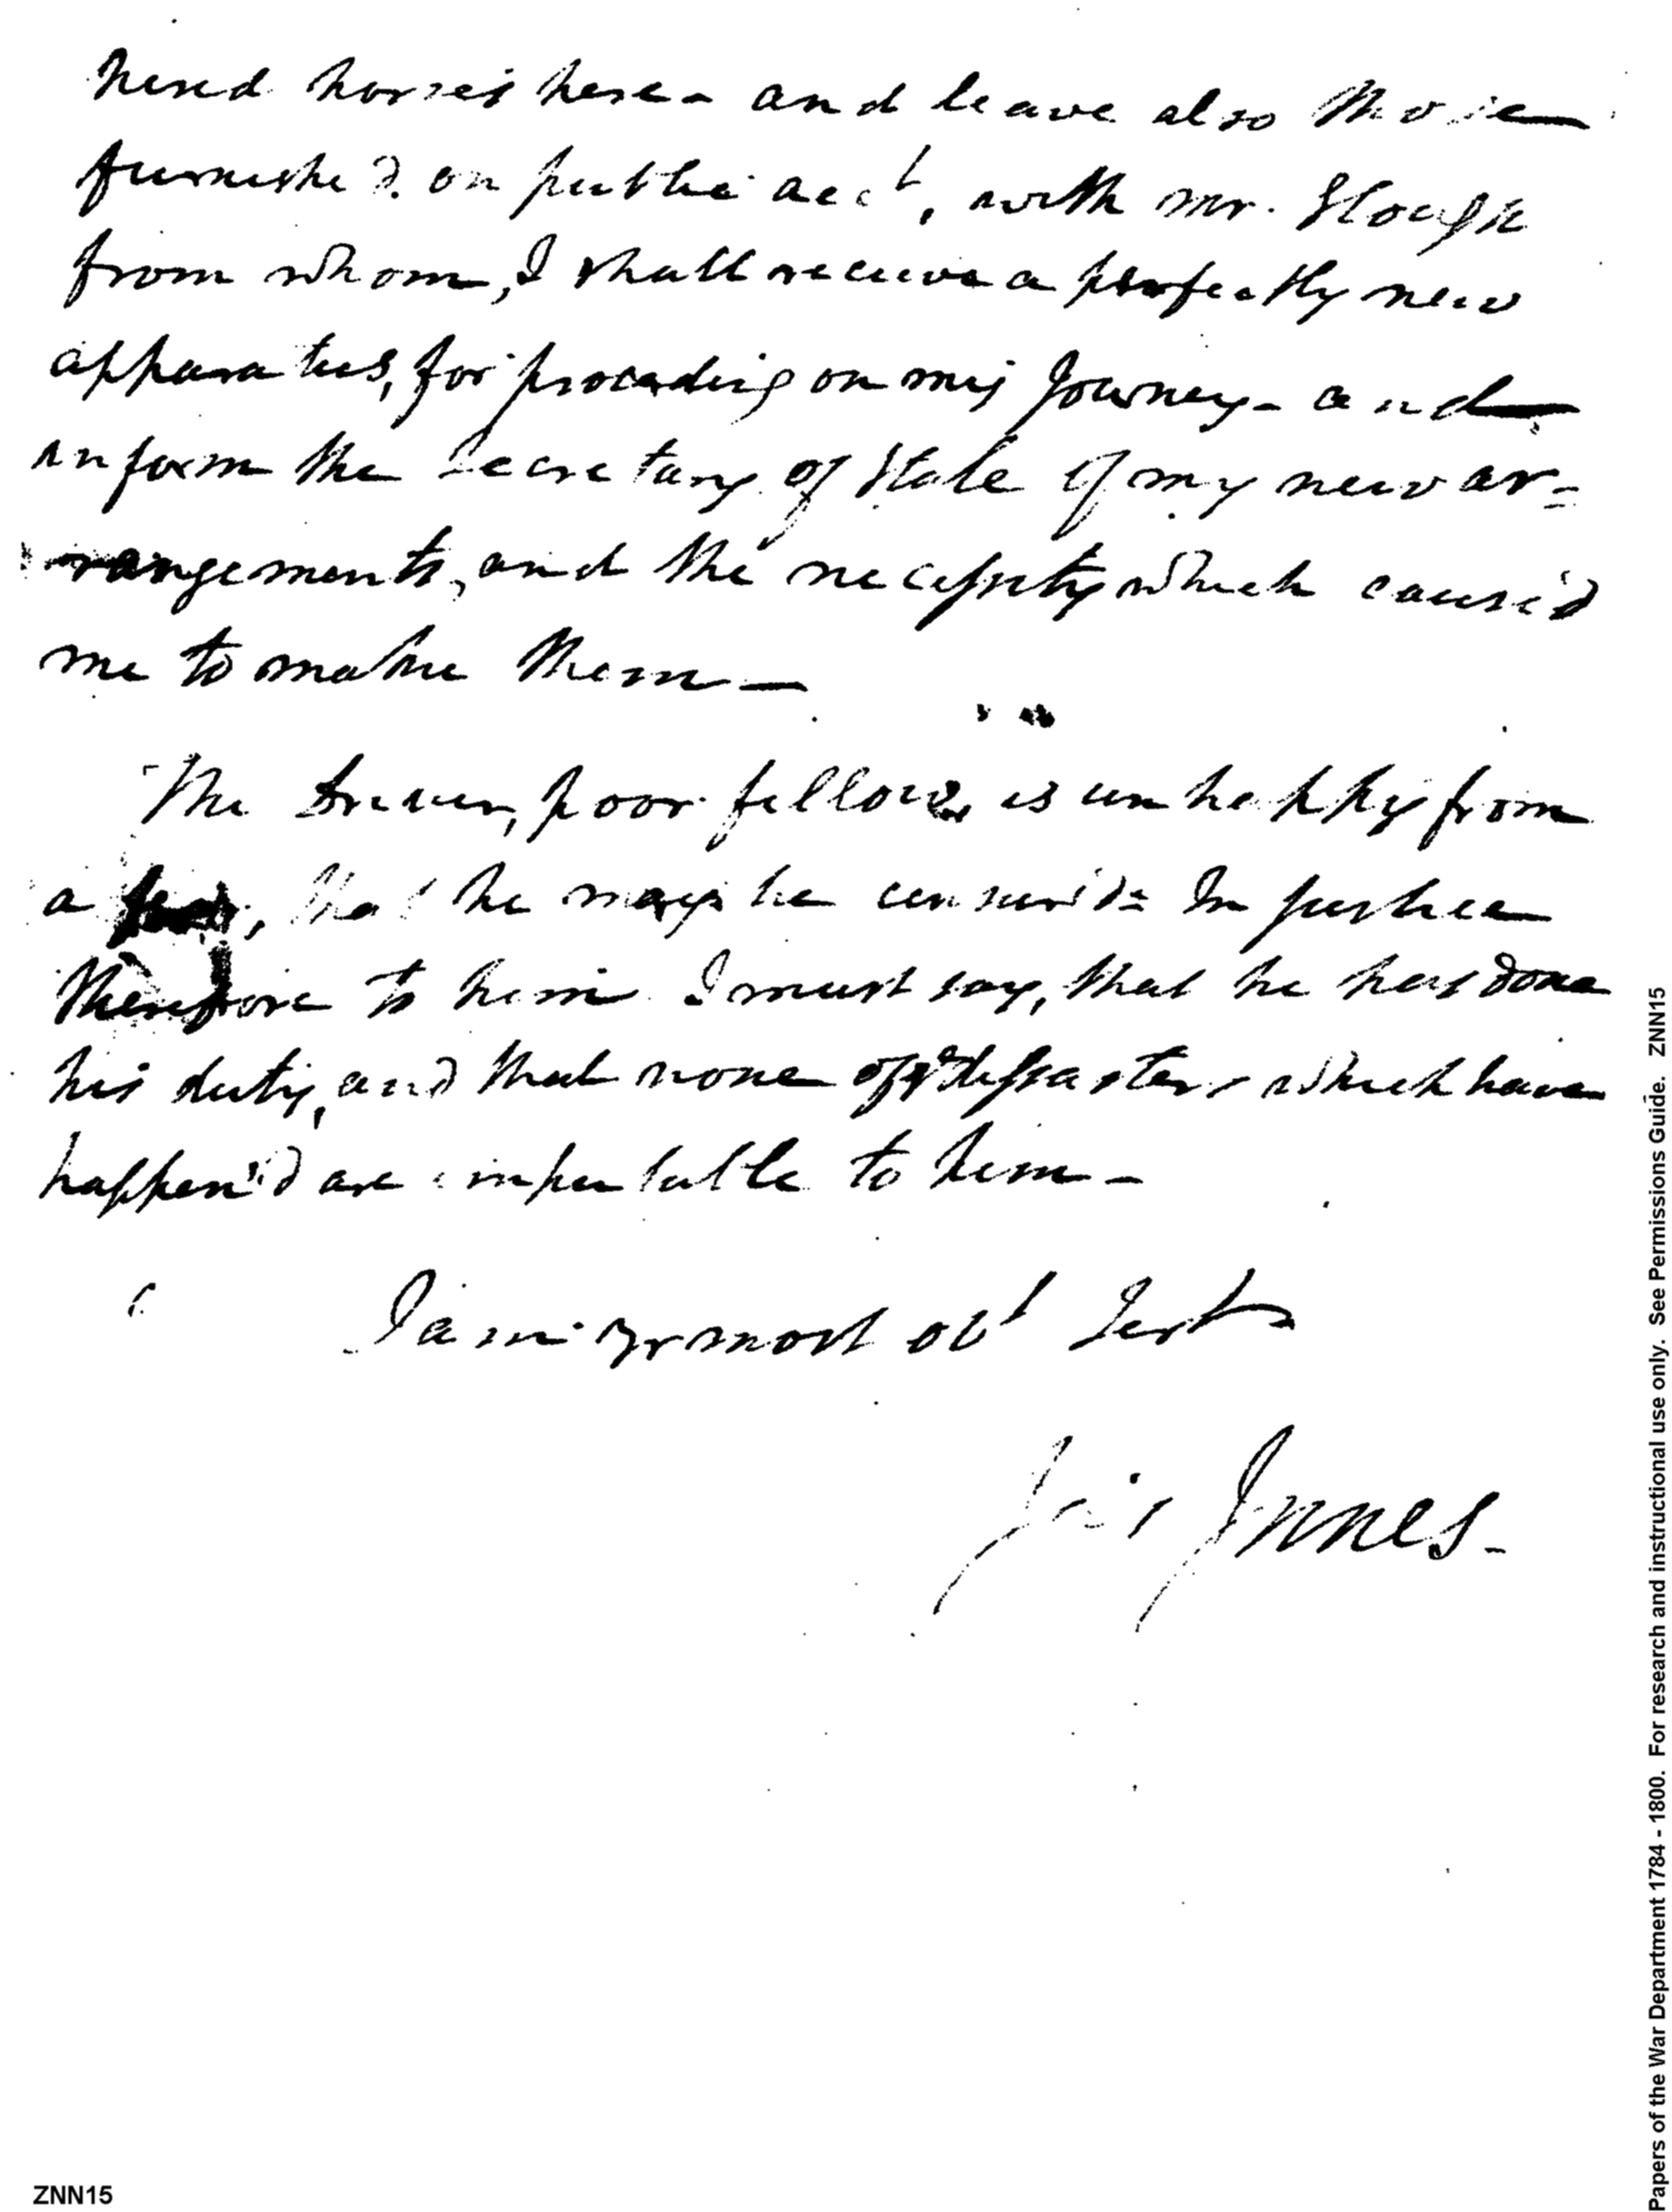 hired horses here - and leave also those
furnished. on public acct, with mr. Slough
from whom, I shall receive a perfectly new
apparatus, for proceeding on my Journey - and
inform the Secretary of State of my new ar=
rangements, and the necessity which caus'd
me to make them -
The driver, poor fellow is unhappy from
a fear, that he may be censur'd= In justice
therefore to him I must say, that he has done
his duty, and that none of ye disasters which have
happen'd are imputable to him -
I am yr most obt Sert
Jas Innes -
ZNN15
Papers of the War Department 1784 - 1800. For research and instructional use only. See Permissions Guide. ZNN15